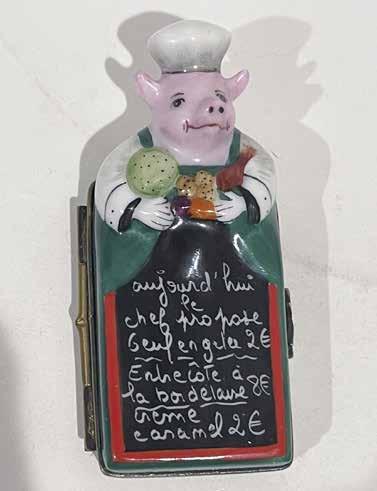 aujourd'hui
le
chef propose
oeuf en gelée 2€
Entrecôte à
la bordelaise 8€
crème
caramel 2€